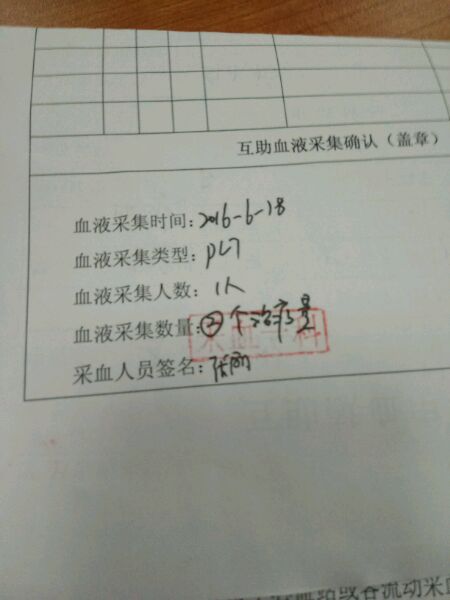 互助血液采集确认（盖章）
血液采集时间：2016-6-18
血液采集类型：PLT
血液采集人数：1人
血液采集数量：②个治疗量
采血人员签名：